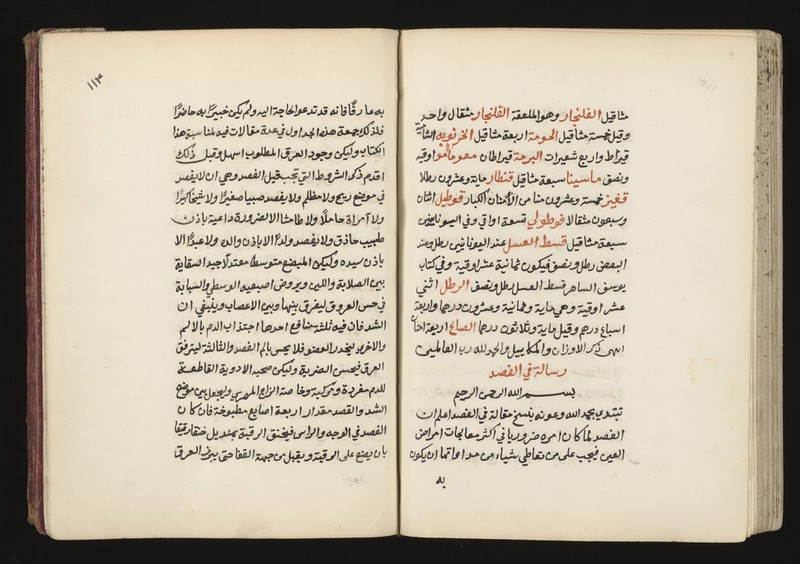 مثاقيل الفلنجار وهو الملعقة الفلنجار مثقال واحد
وقيل خمسة مثاقيل الحومة اربعة مثاقيل الخرنوبه الشامية
قيراط واربع شعيرات قيراطان اوقيه
ونصف ماسينا سبعة مثاقيل قنطار مايه وعشرون رطلا
قفيز خمسة وعشرون منا من الامنان الكبار قوطيل اثنان
وسبعون مثقالا قوطولي تسعة اواقي وفي
سبعة مثاقيل قسط العسل عند اليونانيين رطل وعند
البعض رطل ونصف فيكون ثمانية عشر اوقية وفي كتاب
يوسف الساهر قسط العسل رطل ونصف الرطل اثني
عشر اوقية وهي ماية وثمانية وعشرون درهما واربعة
اسباع درهم وقيل ماية وثلاثون درهما الصاع اربعة امداد
انتهى ذكر الاوزان والمكاييل والحمد لله رب العالمين
رسالة في الفصد
بسم الله الرحمن الرحيم
نبتدي بحمد الله وعونه بنسخ مقالة في الفصد اعلم ان
الفصد لما كان امره ضروريا في اكثر معالجات امراض
العين فيجب على من تعاطي شياء من مداواتها ان يكون
به
١١٣
به عارفا فانه قد تدعو الحاجة اليه ولم يكن خبيرا به حاضرا
فلذلك جمعة هذه الجداول في عدة مقالات فيه لمناسبة هذا
الكتاب وليكن وجود العرق المطلوب اسهل وقبل ذلك
اقدم ذكر الشروط التي تجب قبل الفصد وهي ان لا يفصد
في موضع ريح ولا مظلم ولا يفصد صبيا صغيرا ولا شيخا كبيرا
ولا امراة حاملا ولا طامثا الا لضرورة داعية باذن
طبيب حاذق ولا يفصد ولدا الا باذن والده ولا عبدا الا
باذن سيده وليكن المبضع متوسطا معتدلا جيد السقاية
بين الصلابة واللين ويروض اصبعيه الوسطي والسبابة
في حس العروق ليفرق بينها وبين الاعصاب وينبغي ان
الشد فان فيه ثلثة منافع احدها اجتذاب الدم بالالم
والاخري ليخدر العضو فلا يحس بالم الفصد والثالثة ليترفق
العرق فيحسن الضربة وليكن صحبه الادوية القاطعة
للدم مفردة ومركبة وخاصة الزاج المصري وليجعل بين موضع
الشد والفصد مقدار اربعة اصابع مطبوخة فان كان
الفصد في الوجه والراس فيخنق الرقبة بمنديل خنقا رفيقا
بان يضع على الرقبة ويقبل من جهة القفا حتى يبين العرق